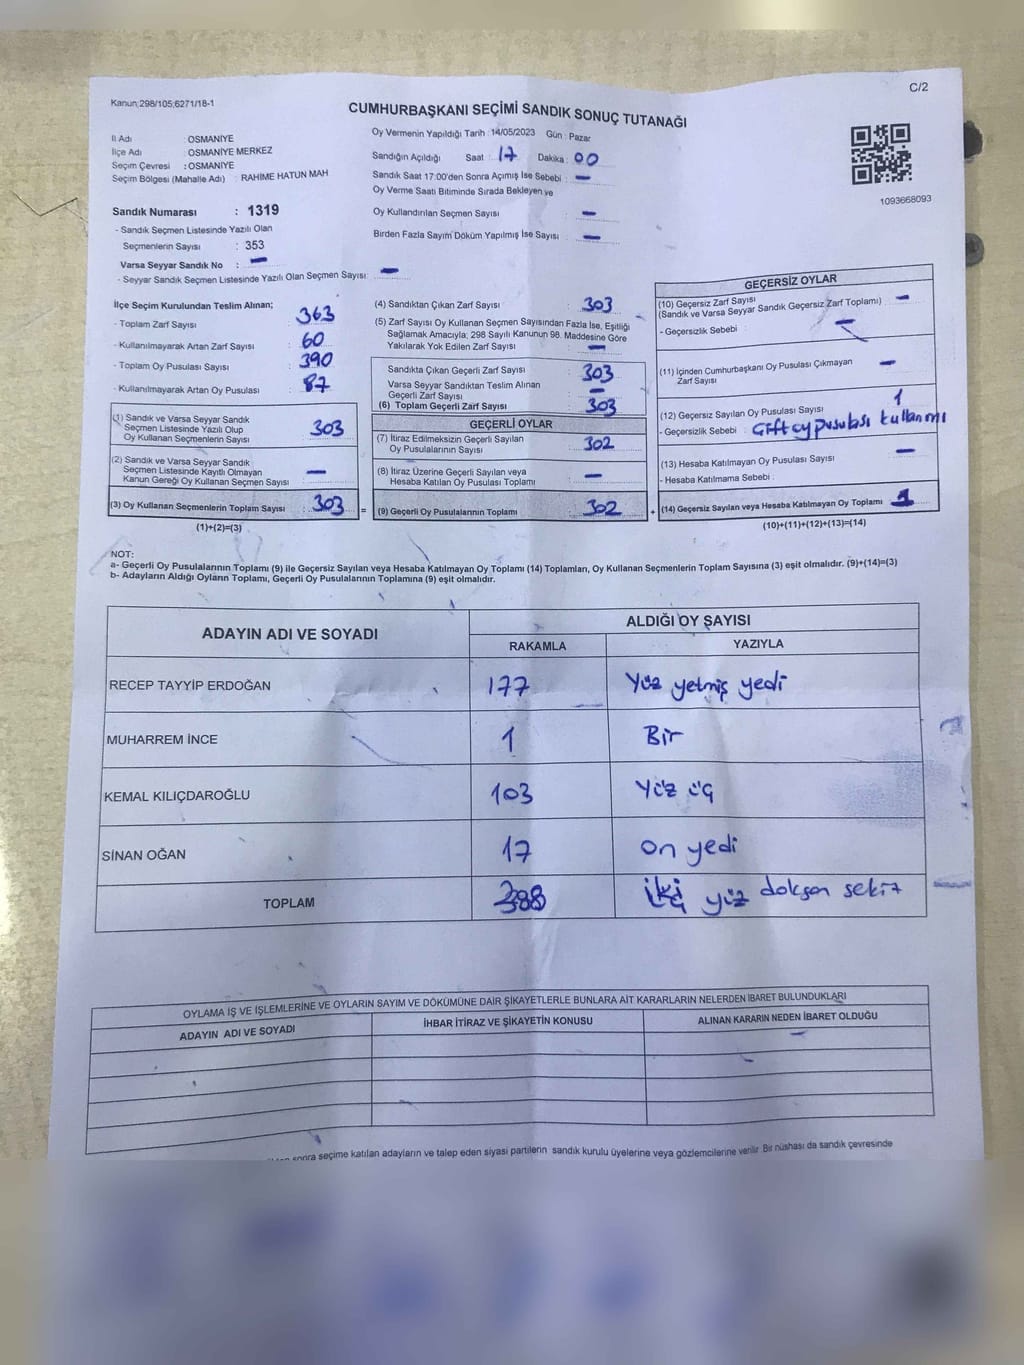 C/2
Kanun;298/105;6271/18-1
CUMHURBAŞKANI SEÇİMİ SANDIK SONUÇ TUTANAĞI
İl Adı : OSMANİYE
İlçe Adı : OSMANİYE MERKEZ
Seçim Çevresi : OSMANİYE
Seçim Bölgesi (Mahalle Adı) : RAHİME HATUN MAH
Sandık Numarası : 1319
- Sandık Seçmen Listesinde Yazılı Olan
Seçmenlerin Sayısı : 353
Varsa Seyyar Sandık No : –
- Seyyar Sandık Seçmen Listesinde Yazılı Olan Seçmen Sayısı: –
Oy Vermenin Yapıldığı Tarih : 14/05/2023 Gün : Pazar
Sandığın Açıldığı Saat : 17 Dakika : 00
Sandık Saat 17:00'den Sonra Açımış İse Sebebi : –
Oy Verme Saati Bitiminde Sırada Bekleyen ve
Oy Kullandırılan Seçmen Sayısı : –
Birden Fazla Sayım Döküm Yapılmış İse Sayısı : –
1093668093
İlçe Seçim Kurulundan Teslim Alınan;
- Toplam Zarf Sayısı : 363
- Kullanılmayarak Artan Zarf Sayısı : 60
- Toplam Oy Pusulası Sayısı : 390
- Kullanılmayarak Artan Oy Pusulası : 87
(1) Sandık ve Varsa Seyyar Sandık
Seçmen Listesinde Yazılı Olup
Oy Kullanan Seçmenlerin Sayısı : 303
(2) Sandık ve Varsa Seyyar Sandık
Seçmen Listesinde Kayıtlı Olmayan
Kanun Gereği Oy Kullanan Seçmen Sayısı : –
(3) Oy Kullanan Seçmenlerin Toplam Sayısı : 303 =
(1)+(2)=(3)
(4) Sandıktan Çıkan Zarf Sayısı : 303
(5) Zarf Sayısı Oy Kullanan Seçmen Sayısından Fazla İse, Eşitliği
Sağlamak Amacıyla; 298 Sayılı Kanunun 98. Maddesine Göre
Yakılarak Yok Edilen Zarf Sayısı : –
Sandıkta Çıkan Geçerli Zarf Sayısı : 303
Varsa Seyyar Sandıktan Teslim Alınan
Geçerli Zarf Sayısı : –
(6) Toplam Geçerli Zarf Sayısı : 303
GEÇERLİ OYLAR
(7) İtiraz Edilmeksizin Geçerli Sayılan
Oy Pusulalarının Sayısı : 302
(8) İtiraz Üzerine Geçerli Sayılan veya
Hesaba Katılan Oy Pusulası Toplamı : –
(9) Geçerli Oy Pusulalarının Toplamı : 302 +
GEÇERSİZ OYLAR
(10) Geçersiz Zarf Sayısı : –
(Sandık ve Varsa Seyyar Sandık Geçersiz Zarf Toplamı)
- Geçersizlik Sebebi : –
(11) İçinden Cumhurbaşkanı Oy Pusulası Çıkmayan
Zarf Sayısı : –
(12) Geçersiz Sayılan Oy Pusulası Sayısı : 1
- Geçersizlik Sebebi : Çift oy pusulası kullanımı
(13) Hesaba Katılmayan Oy Pusulası Sayısı : –
- Hesaba Katılmama Sebebi :
(14) Geçersiz Sayılan veya Hesaba Katılmayan Oy Toplamı : 1
(10)+(11)+(12)+(13)=(14)
NOT:
a- Geçerli Oy Pusulalarının Toplamı (9) ile Geçersiz Sayılan veya Hesaba Katılmayan Oy Toplamı (14) Toplamları, Oy Kullanan Seçmenlerin Toplam Sayısına (3) eşit olmalıdır. (9)+(14)=(3)
b- Adayların Aldığı Oyların Toplamı, Geçerli Oy Pusulalarının Toplamına (9) eşit olmalıdır.
ADAYIN ADI VE SOYADI ALDIĞI OY SAYISI
RAKAMLA YAZIYLA
RECEP TAYYİP ERDOĞAN 177 Yüz yetmiş yedi
MUHARREM İNCE 1 Bir
KEMAL KILIÇDAROĞLU 103 Yüz üç
SİNAN OĞAN 17 on yedi
TOPLAM iki yüz doksan sekiz
OYLAMA İŞ VE İŞLEMLERİNE VE OYLARIN SAYIM VE DÖKÜMÜNE DAİR ŞİKAYETLERLE BUNLARA AİT KARARLARIN NELERDEN İBARET BULUNDUKLARI
ADAYIN ADI VE SOYADI İHBAR İTİRAZ VE ŞİKAYETİN KONUSU ALINAN KARARIN NEDEN İBARET OLDUĞU
sonra seçime katılan adayların ve talep eden siyasi partilerin sandık kurulu üyelerine veya gözlemcilerine verilir. Bir nüshası da sandık çevresinde